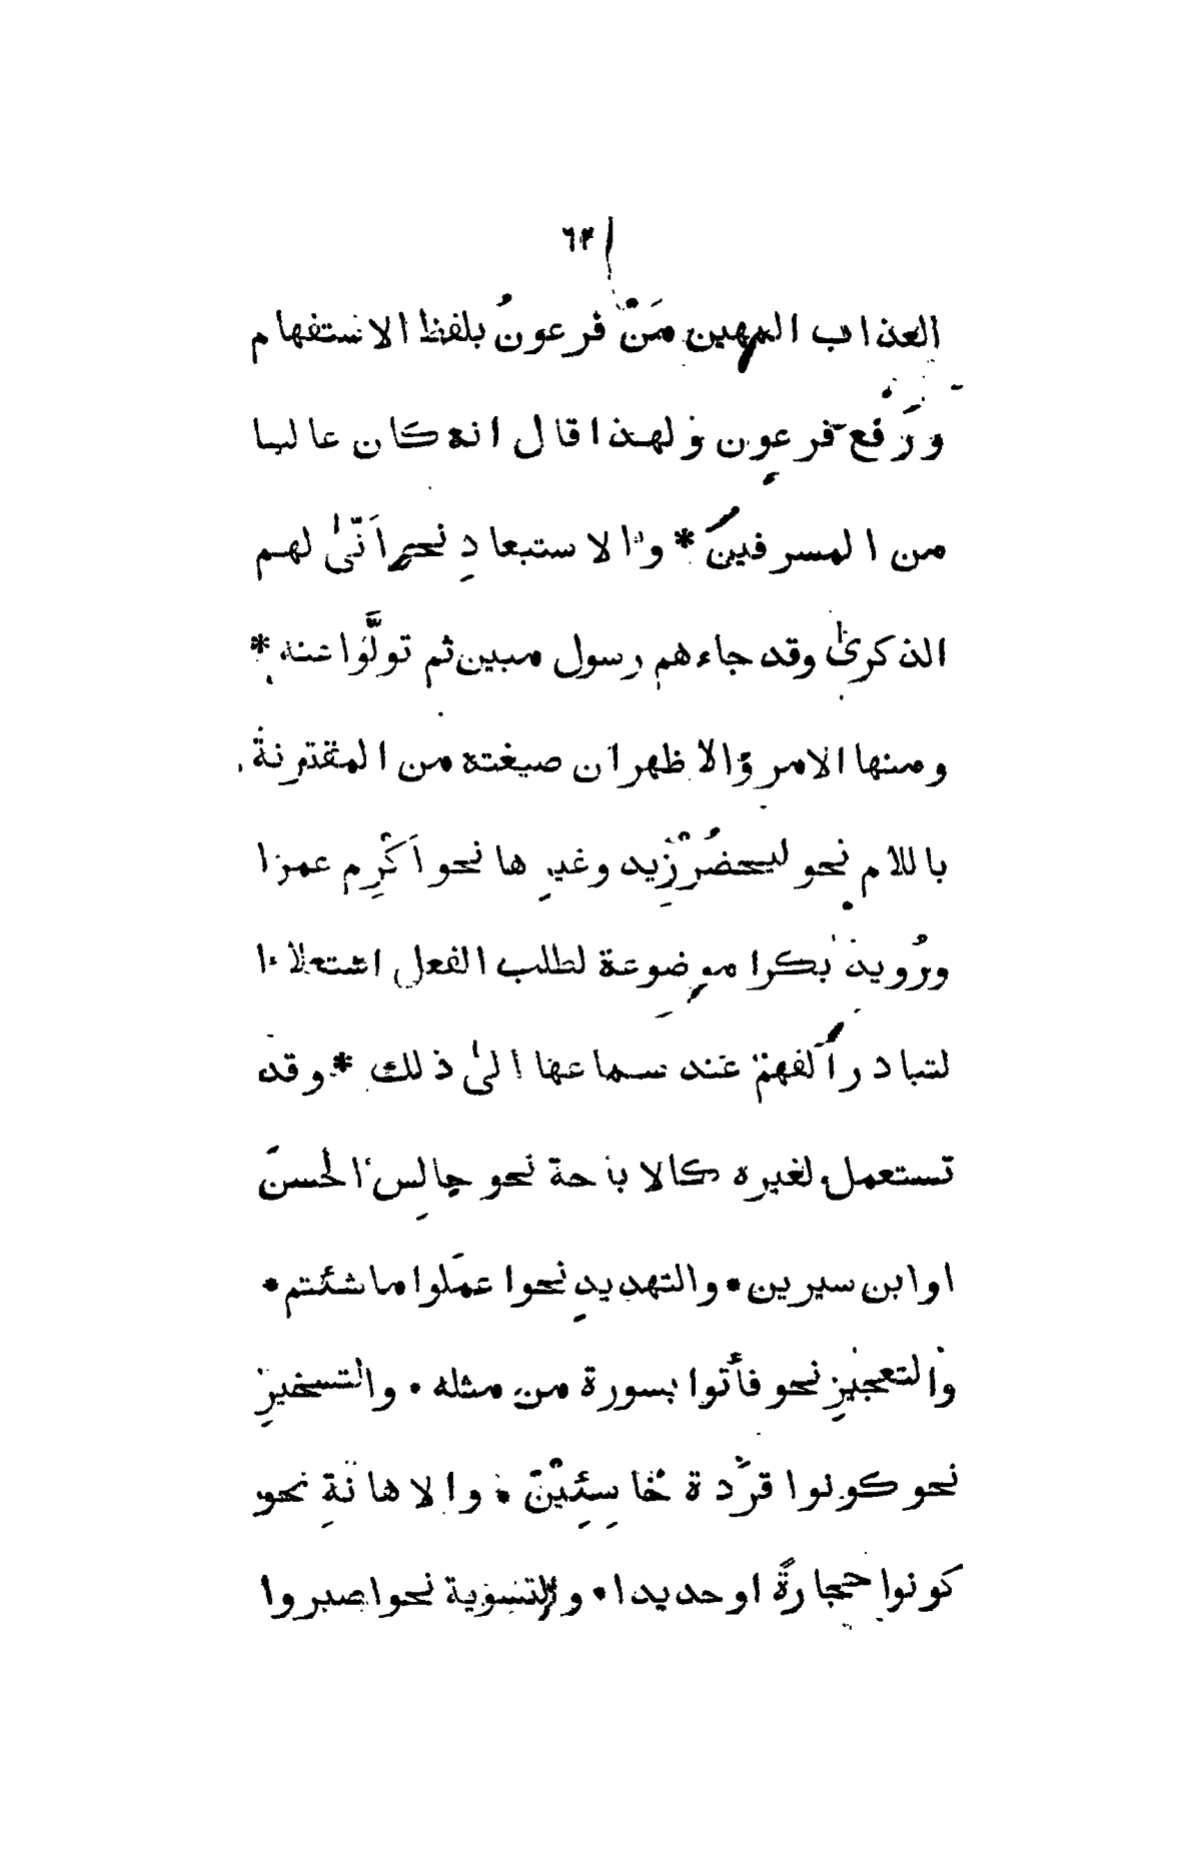 ٦٢
العذاب المهين مَنْ فرعونُ بلفظ الاستفهام
ورَفع فرعون ولهذا قال انه كان عاليا
من المسرفين * والاستبعادِ نحو اَنّىٰ لهم
الذكرىٰ وقد جاءهم رسول مبين ثم تولَّوا عنه *
ومنها الامر والاظهر ان صيغته من المقترنة
باللام نحو ليحضُرْ زيد وغيرها نحو اَكْرِم عمرا
ورُويد بكرا موضوعة لطلب الفعل استعلاءا
لتبادر الفهم عند سماعها الىٰ ذلك * وقد
تستعمل لغيره كالاباحة نحو جالِس الحسنَ
او ابن سيرين • والتهديدِ نحو اعمَلوا ما شئتم •
والتعجيزِ نحو فأتوا بسورة من مثله • والتسخيرِ
نحو كونوا قرَدة خاسِئِيْنَ • والاهانةِ نحو
كونوا حجارةً او حديدا • والتسوية نحو اصبروا